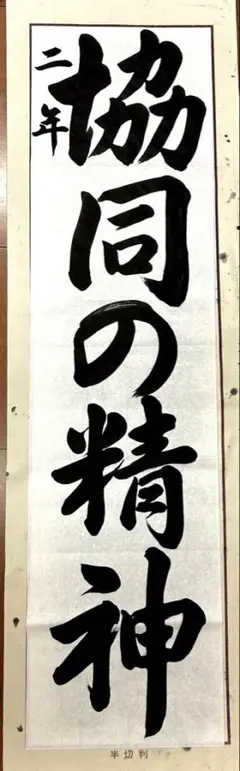 協同の精神
二年
半切判